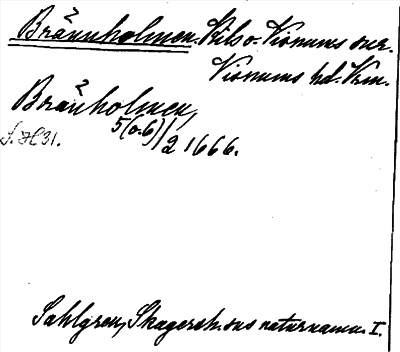 Bråunholmen. Kils o. Visnums snr.
Visnums hd. Vrm.
Bråuholmen,
5(o. 6)/2 1666.
S. H 31.
Sahlgren, Skagersh. sns naturnamn. I.